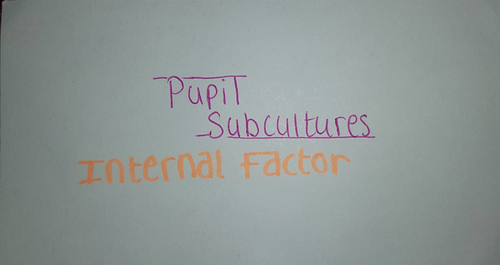 Pupil
Subcultures
Internal Factor